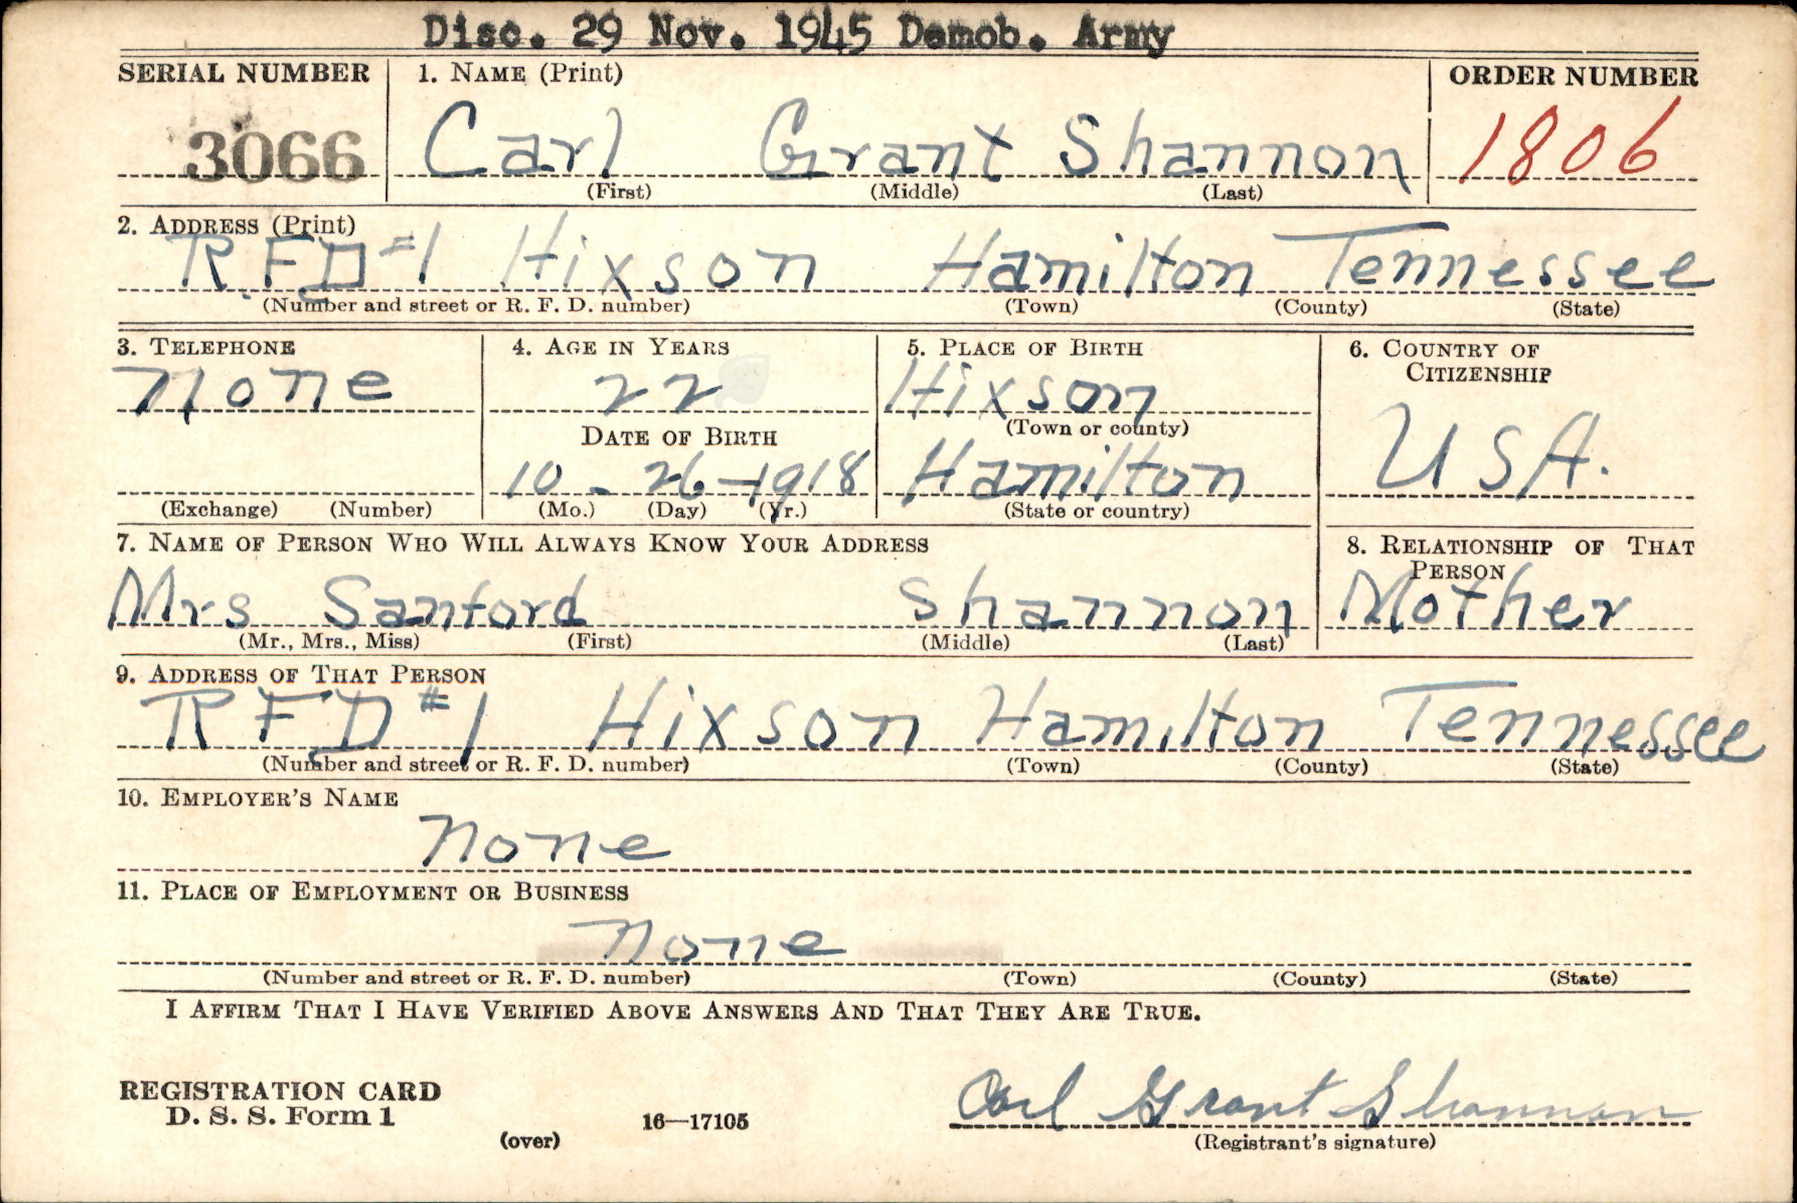 Disc. 29 Nov. 1945 Demob. Army
SERIAL NUMBER 1. NAME (Print) ORDER NUMBER
3066 Carl Grant Shannon 1806
(First) (Middle) (Last)
2. ADDRESS (Print)
R.F.D #1 Hixson Hamilton Tennessee
(Number and street or R. F. D. number) (Town) (County) (State)
3. TELEPHONE 4. AGE IN YEARS 5. PLACE OF BIRTH 6. COUNTRY OF
CITIZENSHIP
None 22 Hixson
DATE OF BIRTH (Town or county)
10 - 26 - 1918 Hamilton USA.
(Exchange) (Number) (Mo.) (Day) (Yr.) (State or country)
7. NAME OF PERSON WHO WILL ALWAYS KNOW YOUR ADDRESS 8. RELATIONSHIP OF THAT
PERSON
Mrs Sanford Shannon Mother
(Mr., Mrs., Miss) (First) (Middle) (Last)
9. ADDRESS OF THAT PERSON
RFD #1 Hixson Hamilton Tennessee
(Number and street or R. F. D. number) (Town) (County) (State)
10. EMPLOYER'S NAME
None
11. PLACE OF EMPLOYMENT OR BUSINESS
None
(Number and street or R. F. D. number) (Town) (County) (State)
I AFFIRM THAT I HAVE VERIFIED ABOVE ANSWERS AND THAT THEY ARE TRUE.
REGISTRATION CARD
D. S. S. Form 1 16—17105 Carl Grant Shannon
(over) (Registrant's signature)